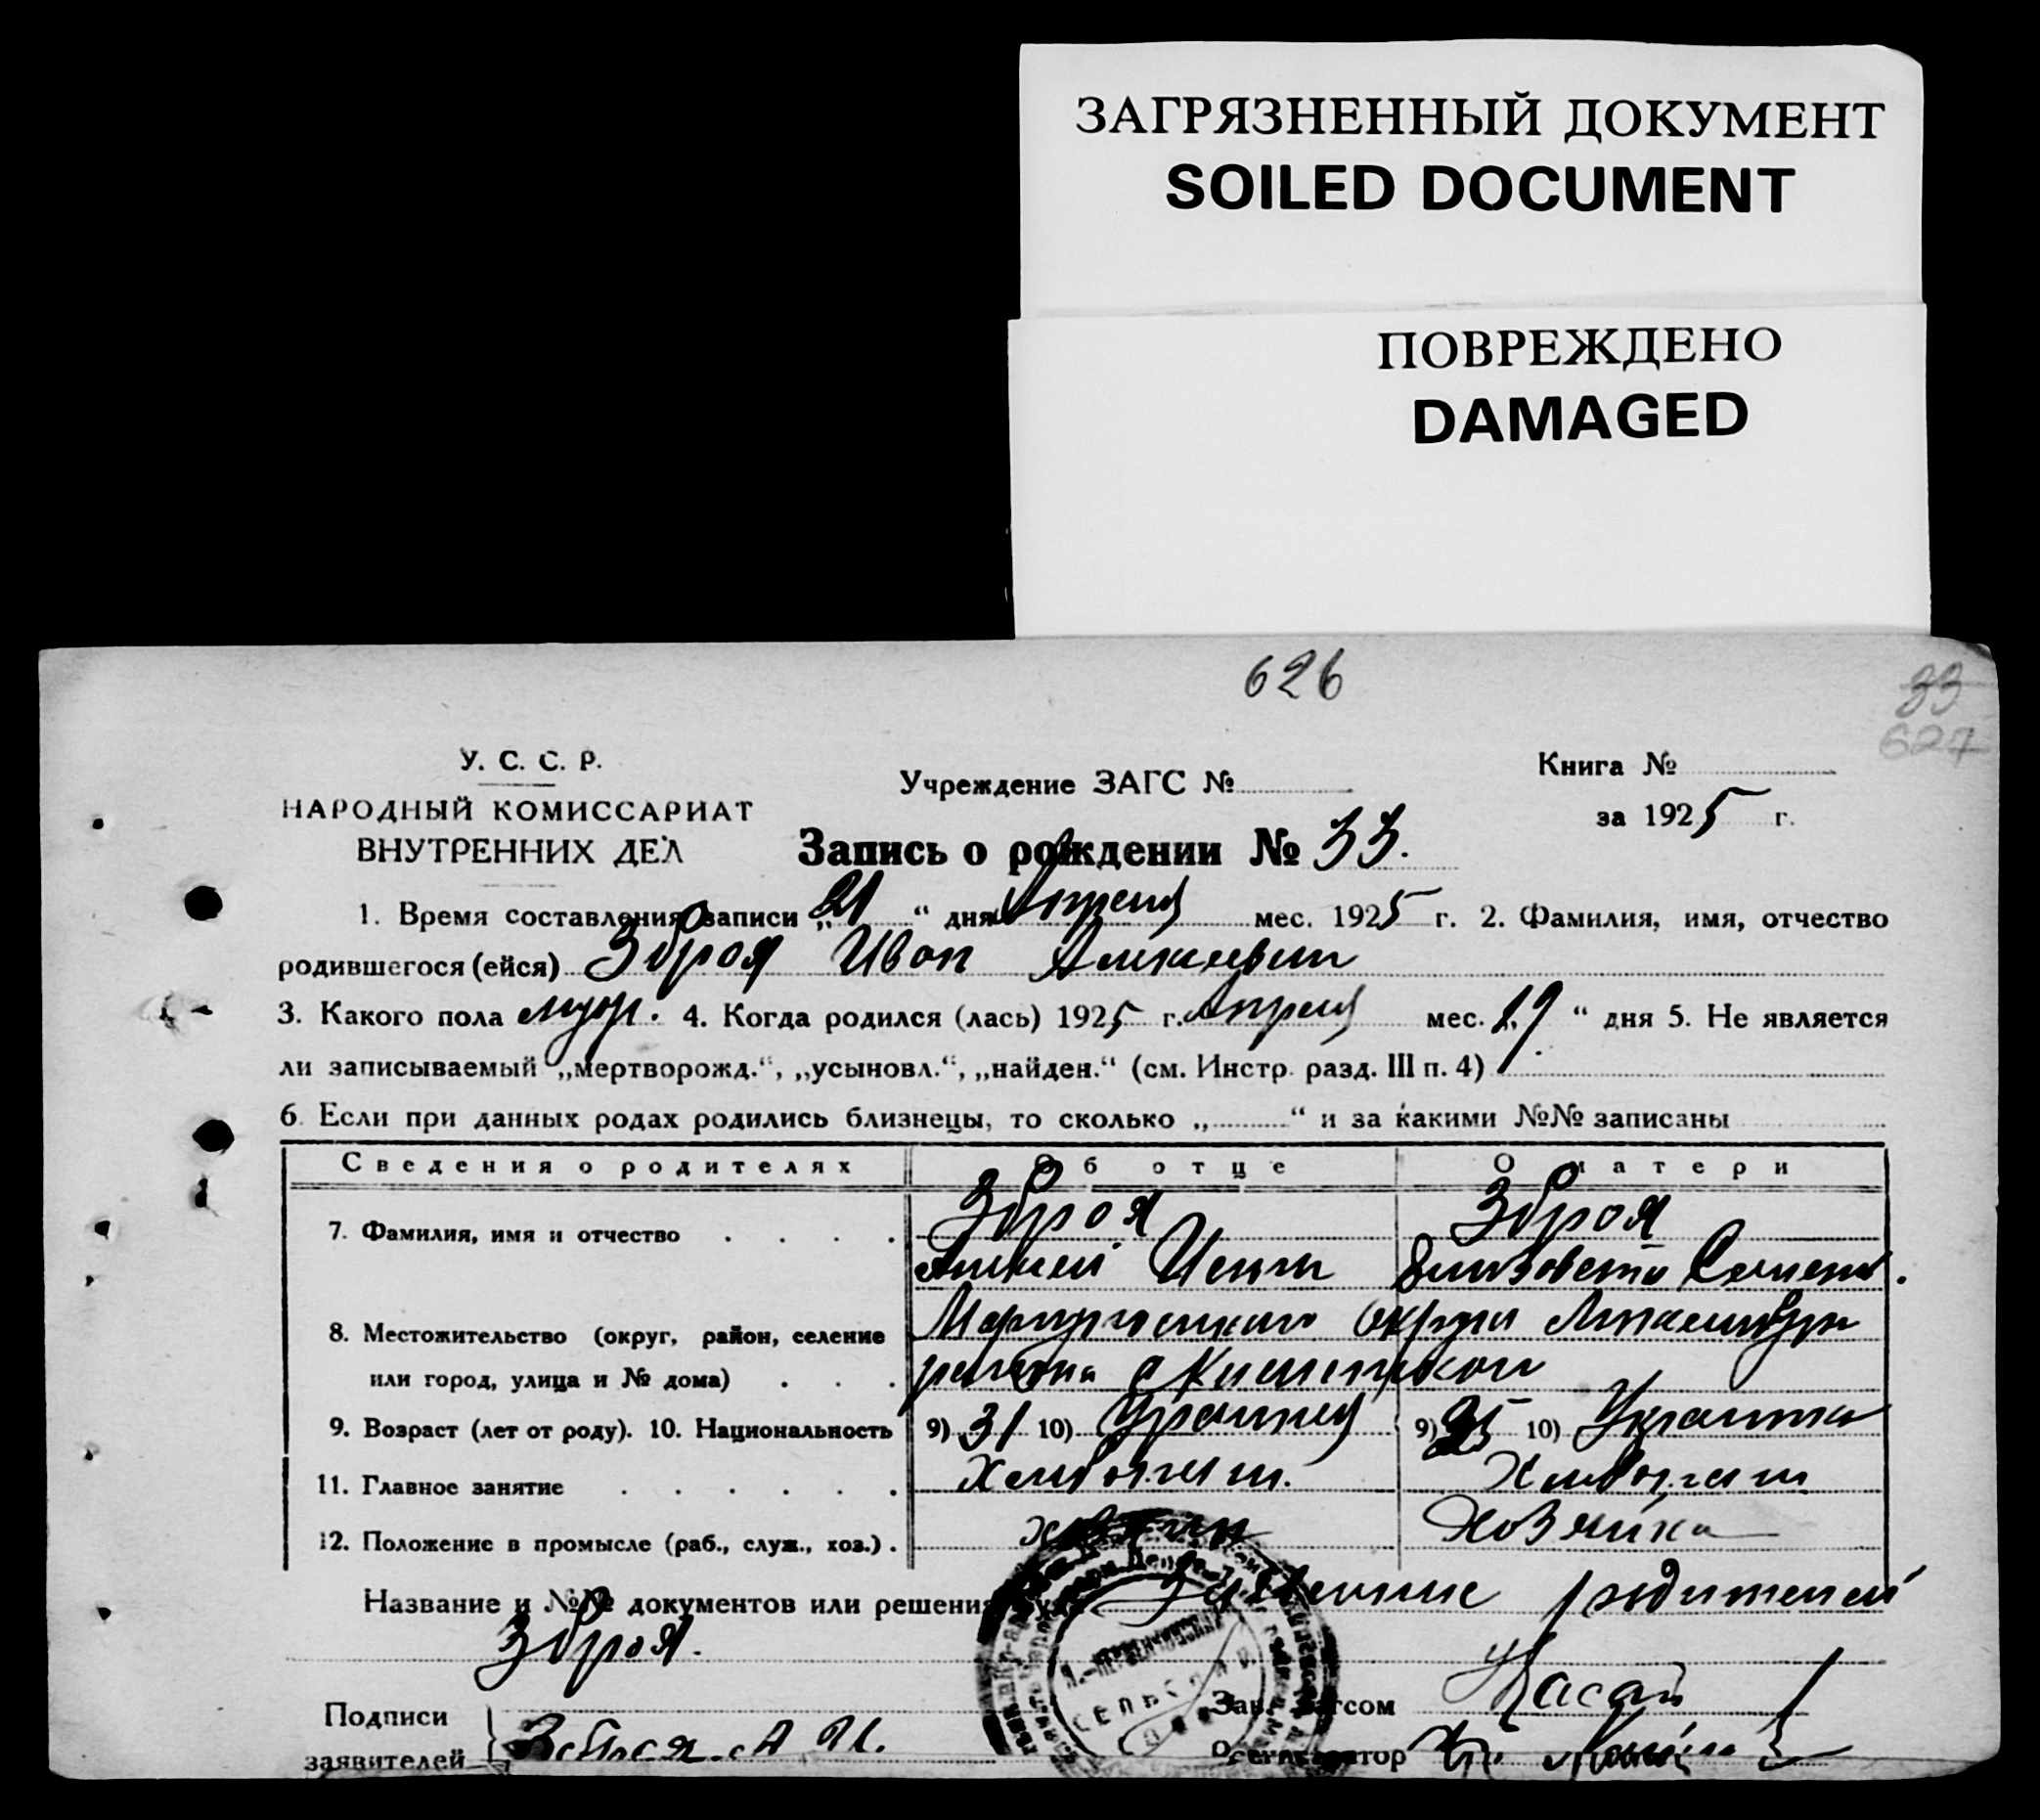 ЗАГРЯЗНЕННЫЙ ДОКУМЕНТ
SOILED DOCUMENT
ПОВРЕЖДЕНО
DAMAGED
626
33
627
У. С. С. Р.
НАРОДНЫЙ КОМИССАРИАТ
ВНУТРЕННИХ ДЕЛ
Учреждение ЗАГС №
Книга №
за 1925 г.
Запись о рождении № 33.
1. Время составления записи „21“ дня Апреля мес. 1925 г. 2. Фамилия, имя, отчество
родившегося (ейся) Зброя Иван Алексеевич
3. Какого пола муж. 4. Когда родился (лась) 1925 г. Апреля мес. „19“ дня 5. Не является
ли записываемый „мертворожд.“, „усыновл.“, „найден.“ (см. Инстр. разд. III п. 4)
6. Если при данных родах родились близнецы, то сколько „ “ и за какими №№ записаны
Сведения о родителях Об отце О матери
7. Фамилия, имя и отчество Зброя Зброя
Алексей Елизовета Семен.
8. Местожительство (округ, район, селение Мариупольского округа
или город, улица и № дома) района с
9. Возраст (лет от роду). 10. Национальность 9) 31 10) 9) 25 10) Украинка
11. Главное занятие Хлебопаш. Хлебопаш
12. Положение в промысле (раб., служ., хоз.) Хозяйка
Название и №№ документов или решения родителей
Зброя.
Подписи
заявителей Зброя А И.
СЕЛЬСКАЯ
Зав. Загсом
Регистратор